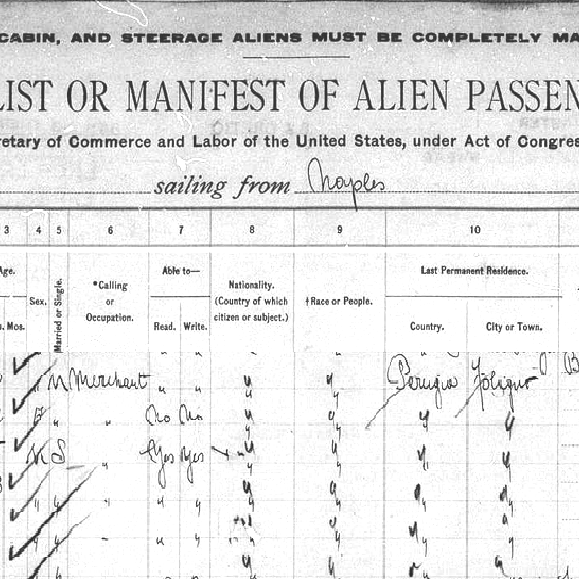 CABIN, AND STEERAGE ALIENS MUST BE COMPLETELY MA
LIST OR MANIFEST OF ALIEN PASSEN
retary of Commerce and Labor of the United States, under Act of Congres
sailing from Naples
3 4 5 6 7 8 9 10
ge. Sex. Married or Single. *Calling or Occupation. Able to— Nationality. (Country of which citizen or subject.) †Race or People. Last Permanent Residence.
Mos. Read. Write. Country. City or Town.
Merchant " " " " Perugia Foligno
" " No No " " " "
S Yes Yes " " " "
" " " " " " " "
" " " " " " " "